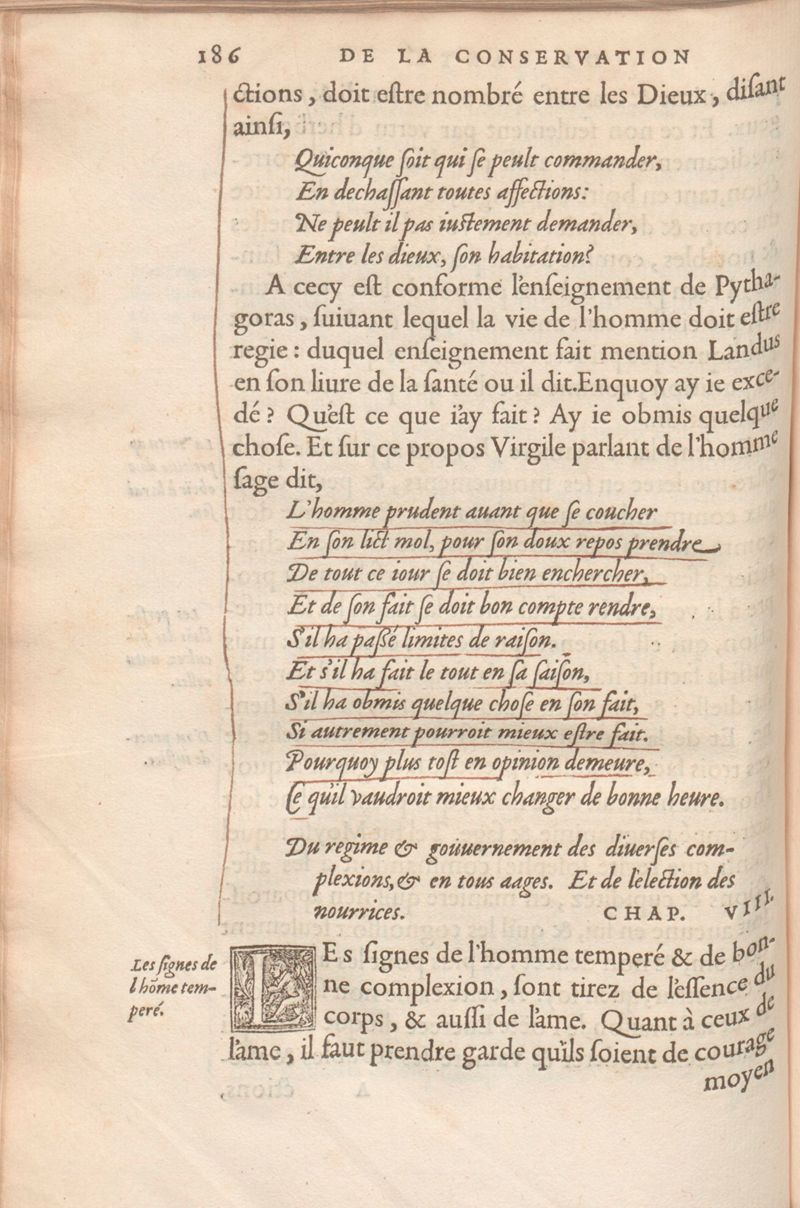 186 DE LA CONSERVATION
ctions, doit estre nombré entre les Dieux, disant
ainsi,
Quiconque soit qui se peult commander,
En dechassant toutes affections:
Ne peult il pas iustement demander,
Entre les dieux, son habitation?
A cecy est conforme l'enseignement de Pytha-
goras, suiuant lequel la vie de l'homme doit estre
regie: duquel enseignement fait mention Landus
en son liure de la santé ou il dit.Enquoy ay ie exce-
dé? Qu'est ce que i'ay fait? Ay ie obmis quelque
chose. Et sur ce propos Virgile parlant de l'homme
sage dit,
L'homme prudent auant que se coucher
En son lict mol, pour son doux repos prendre
De tout ce iour se doit bien enchercher,
Et de son fait se doit bon compte rendre,
S'il ha passé limites de raison.
Et s'il ha fait le tout en sa saison,
S'il ha obmis quelque chose en son fait,
Si autrement pourroit mieux estre fait.
Pourquoy plus tost en opinion demeure,
Ce qu'il vaudroit mieux changer de bonne heure.
Du regime & gouuernement des diuerses com-
plexions, & en tous aages. Et de l'election des
nourrices. CHAP. VIII.
Les signes de
l'hõme tem-
peré.
LEs signes de l'homme temperé & de bon-
ne complexion, sont tirez de l'essence du
corps, & aussi de l'ame. Quant à ceux de
l'ame, il faut prendre garde qu'ils soient de courage
moyen